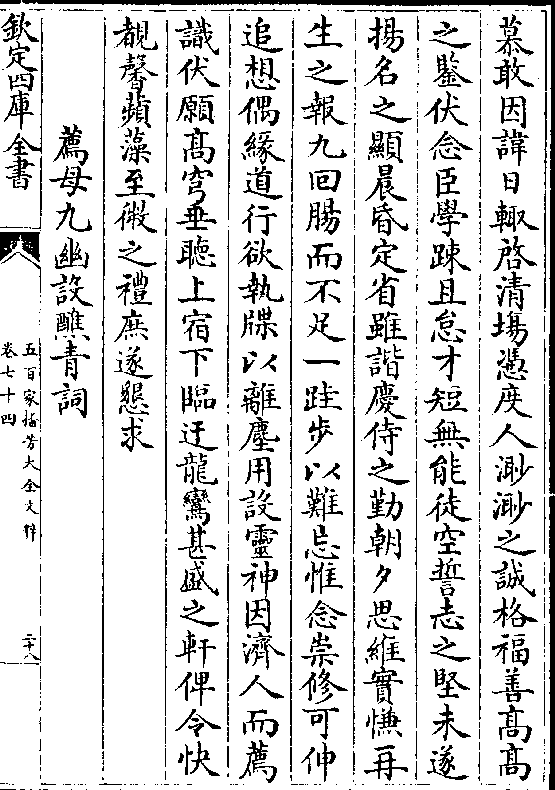 慕敢因諱日輙啓清塲憑度人渺渺之誠格福善髙髙
之鑒伏念臣學踈且怠才短無能徒空誓志之堅未遂
揚名之顯晨昏定省雖諧慶侍之勤朝夕思維實慊再
生之報九回腸而不足一跬步以難忘惟念崇修可伸
追想偶緣道行欲執牒以離塵用設靈神因濟人而薦
識伏願髙穹垂聽上宿下臨迂龍鸞甚盛之軒俾令快
覩馨蘋藻至微之禮庶遂懇求
薦母九幽設醮青詞
欽定四庫全書
五百家播芳大全文粹
卷七十四
二十八